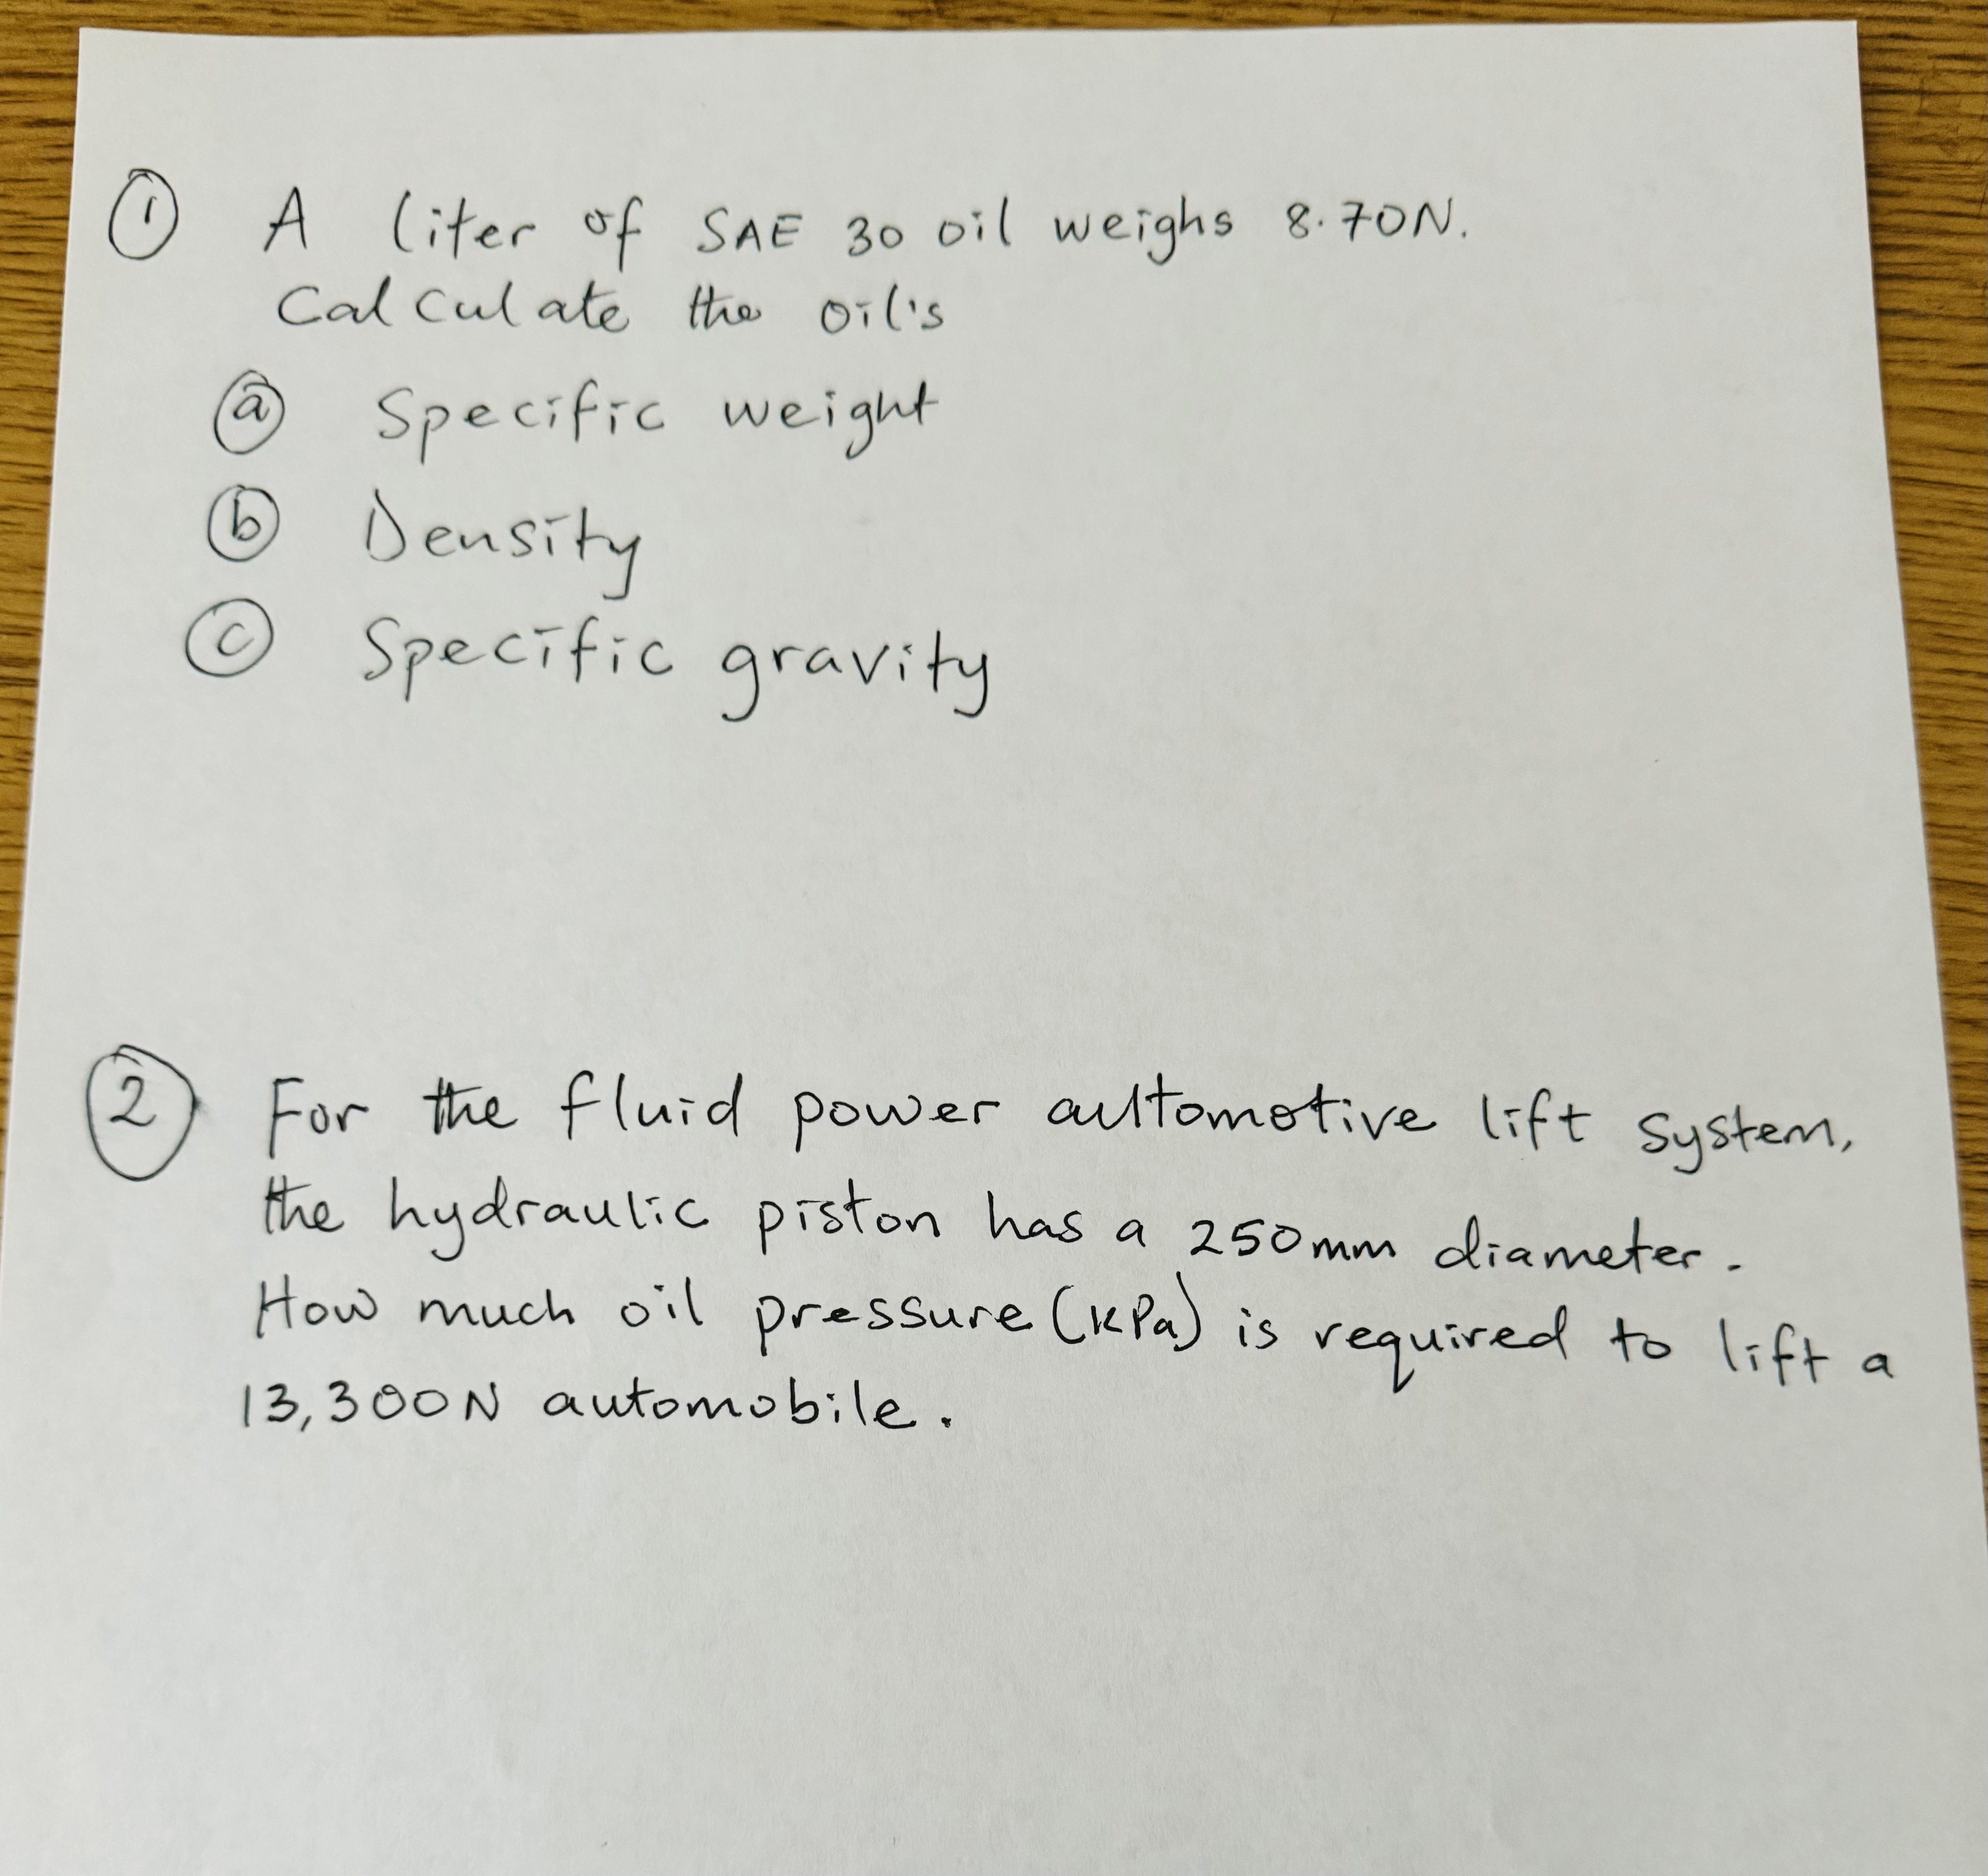 ① A liter of SAE 30 oil weighs 8.70N.
Calculate the oil's
ⓐ Specific weight
ⓑ Density
ⓒ Specific gravity
② For the fluid power automotive lift system,
the hydraulic piston has a 250mm diameter.
How much oil pressure (kPa) is required to lift a
13,300N automobile.